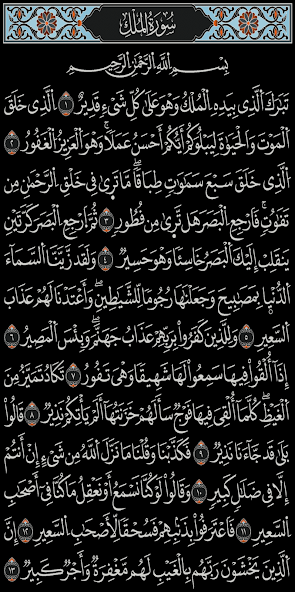 سُورَةُ المُلْكِ
بِسْمِ اللَّهِ الرَّحْمَٰنِ الرَّحِيمِ
تَبَٰرَكَ ٱلَّذِى بِيَدِهِ ٱلْمُلْكُ وَهُوَ عَلَىٰ كُلِّ شَىْءٍ قَدِيرٌ ١ ٱلَّذِى خَلَقَ
ٱلْمَوْتَ وَٱلْحَيَوٰةَ لِيَبْلُوَكُمْ أَيُّكُمْ أَحْسَنُ عَمَلًا ۚ وَهُوَ ٱلْعَزِيزُ ٱلْغَفُورُ ٢
ٱلَّذِى خَلَقَ سَبْعَ سَمَٰوَٰتٍ طِبَاقًا ۖ مَّا تَرَىٰ فِى خَلْقِ ٱلرَّحْمَٰنِ مِن
تَفَٰوُتٍ ۖ فَٱرْجِعِ ٱلْبَصَرَ هَلْ تَرَىٰ مِن فُطُورٍ ٣ ثُمَّ ٱرْجِعِ ٱلْبَصَرَ كَرَّتَيْنِ
يَنقَلِبْ إِلَيْكَ ٱلْبَصَرُ خَاسِئًا وَهُوَ حَسِيرٌ ٤ وَلَقَدْ زَيَّنَّا ٱلسَّمَآءَ
ٱلدُّنْيَا بِمَصَٰبِيحَ وَجَعَلْنَٰهَا رُجُومًا لِّلشَّيَٰطِينِ ۖ وَأَعْتَدْنَا لَهُمْ عَذَابَ
ٱلسَّعِيرِ ٥ وَلِلَّذِينَ كَفَرُوا۟ بِرَبِّهِمْ عَذَابُ جَهَنَّمَ ۖ وَبِئْسَ ٱلْمَصِيرُ ٦
إِذَآ أُلْقُوا۟ فِيهَا سَمِعُوا۟ لَهَا شَهِيقًا وَهِىَ تَفُورُ ٧ تَكَادُ تَمَيَّزُ مِنَ
ٱلْغَيْظِ ۖ كُلَّمَآ أُلْقِىَ فِيهَا فَوْجٌ سَأَلَهُمْ خَزَنَتُهَآ أَلَمْ يَأْتِكُمْ نَذِيرٌ ٨ قَالُوا۟
بَلَىٰ قَدْ جَآءَنَا نَذِيرٌ ٩ فَكَذَّبْنَا وَقُلْنَا مَا نَزَّلَ ٱللَّهُ مِن شَىْءٍ إِنْ أَنتُمْ
إِلَّا فِى ضَلَٰلٍ كَبِيرٍ ١٠ وَقَالُوا۟ لَوْ كُنَّا نَسْمَعُ أَوْ نَعْقِلُ مَا كُنَّا فِىٓ أَصْحَٰبِ
ٱلسَّعِيرِ ١١ فَٱعْتَرَفُوا۟ بِذَنۢبِهِمْ فَسُحْقًا لِّأَصْحَٰبِ ٱلسَّعِيرِ ١٢ إِنَّ
ٱلَّذِينَ يَخْشَوْنَ رَبَّهُم بِٱلْغَيْبِ لَهُم مَّغْفِرَةٌ وَأَجْرٌ كَبِيرٌ ١٣